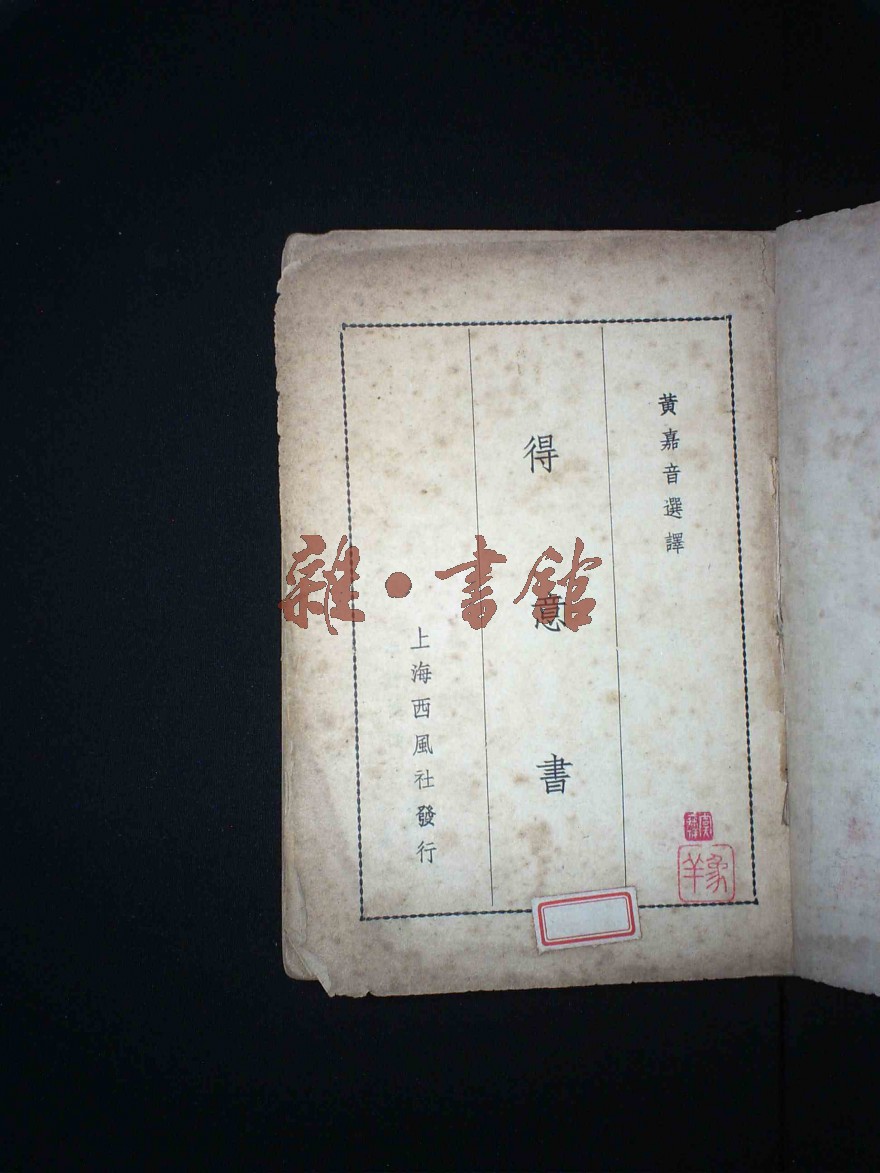 黃嘉音選譯
得意書
上海西風社發行
雜·書館